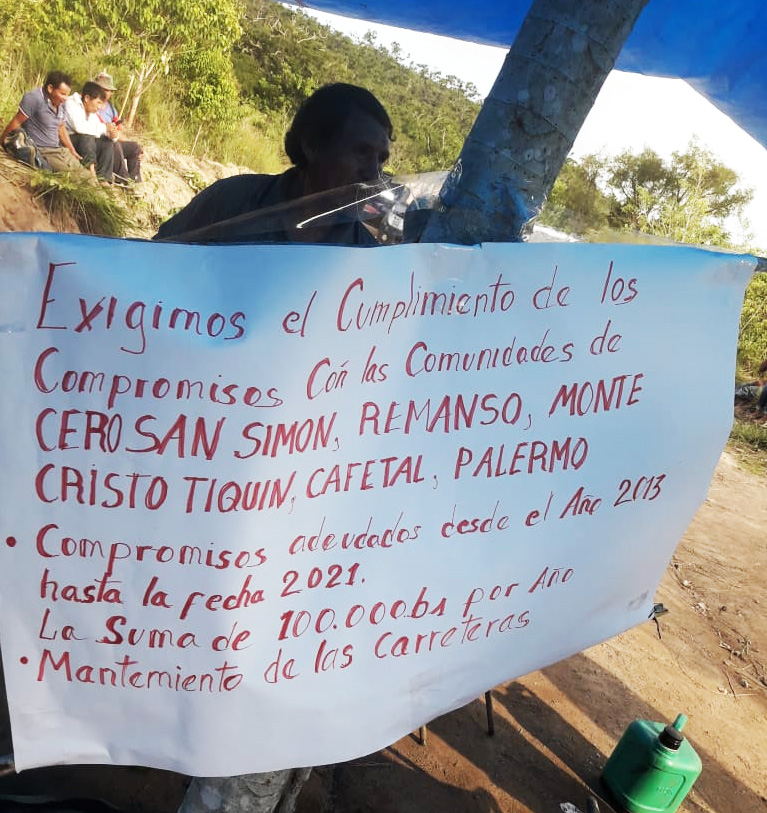 Exigimos el Cumplimiento de los
Compromisos Cón las Comunidades de
CERO SAN SIMON, REMANSO, MONTE
CRISTO TIQUIN, CAFETAL, PALERMO
• Compromisos adeudados desde el Año 2013
hasta la fecha 2021.
La Suma de 100.000.bs por Año
• Mantemiento de las Carreteras